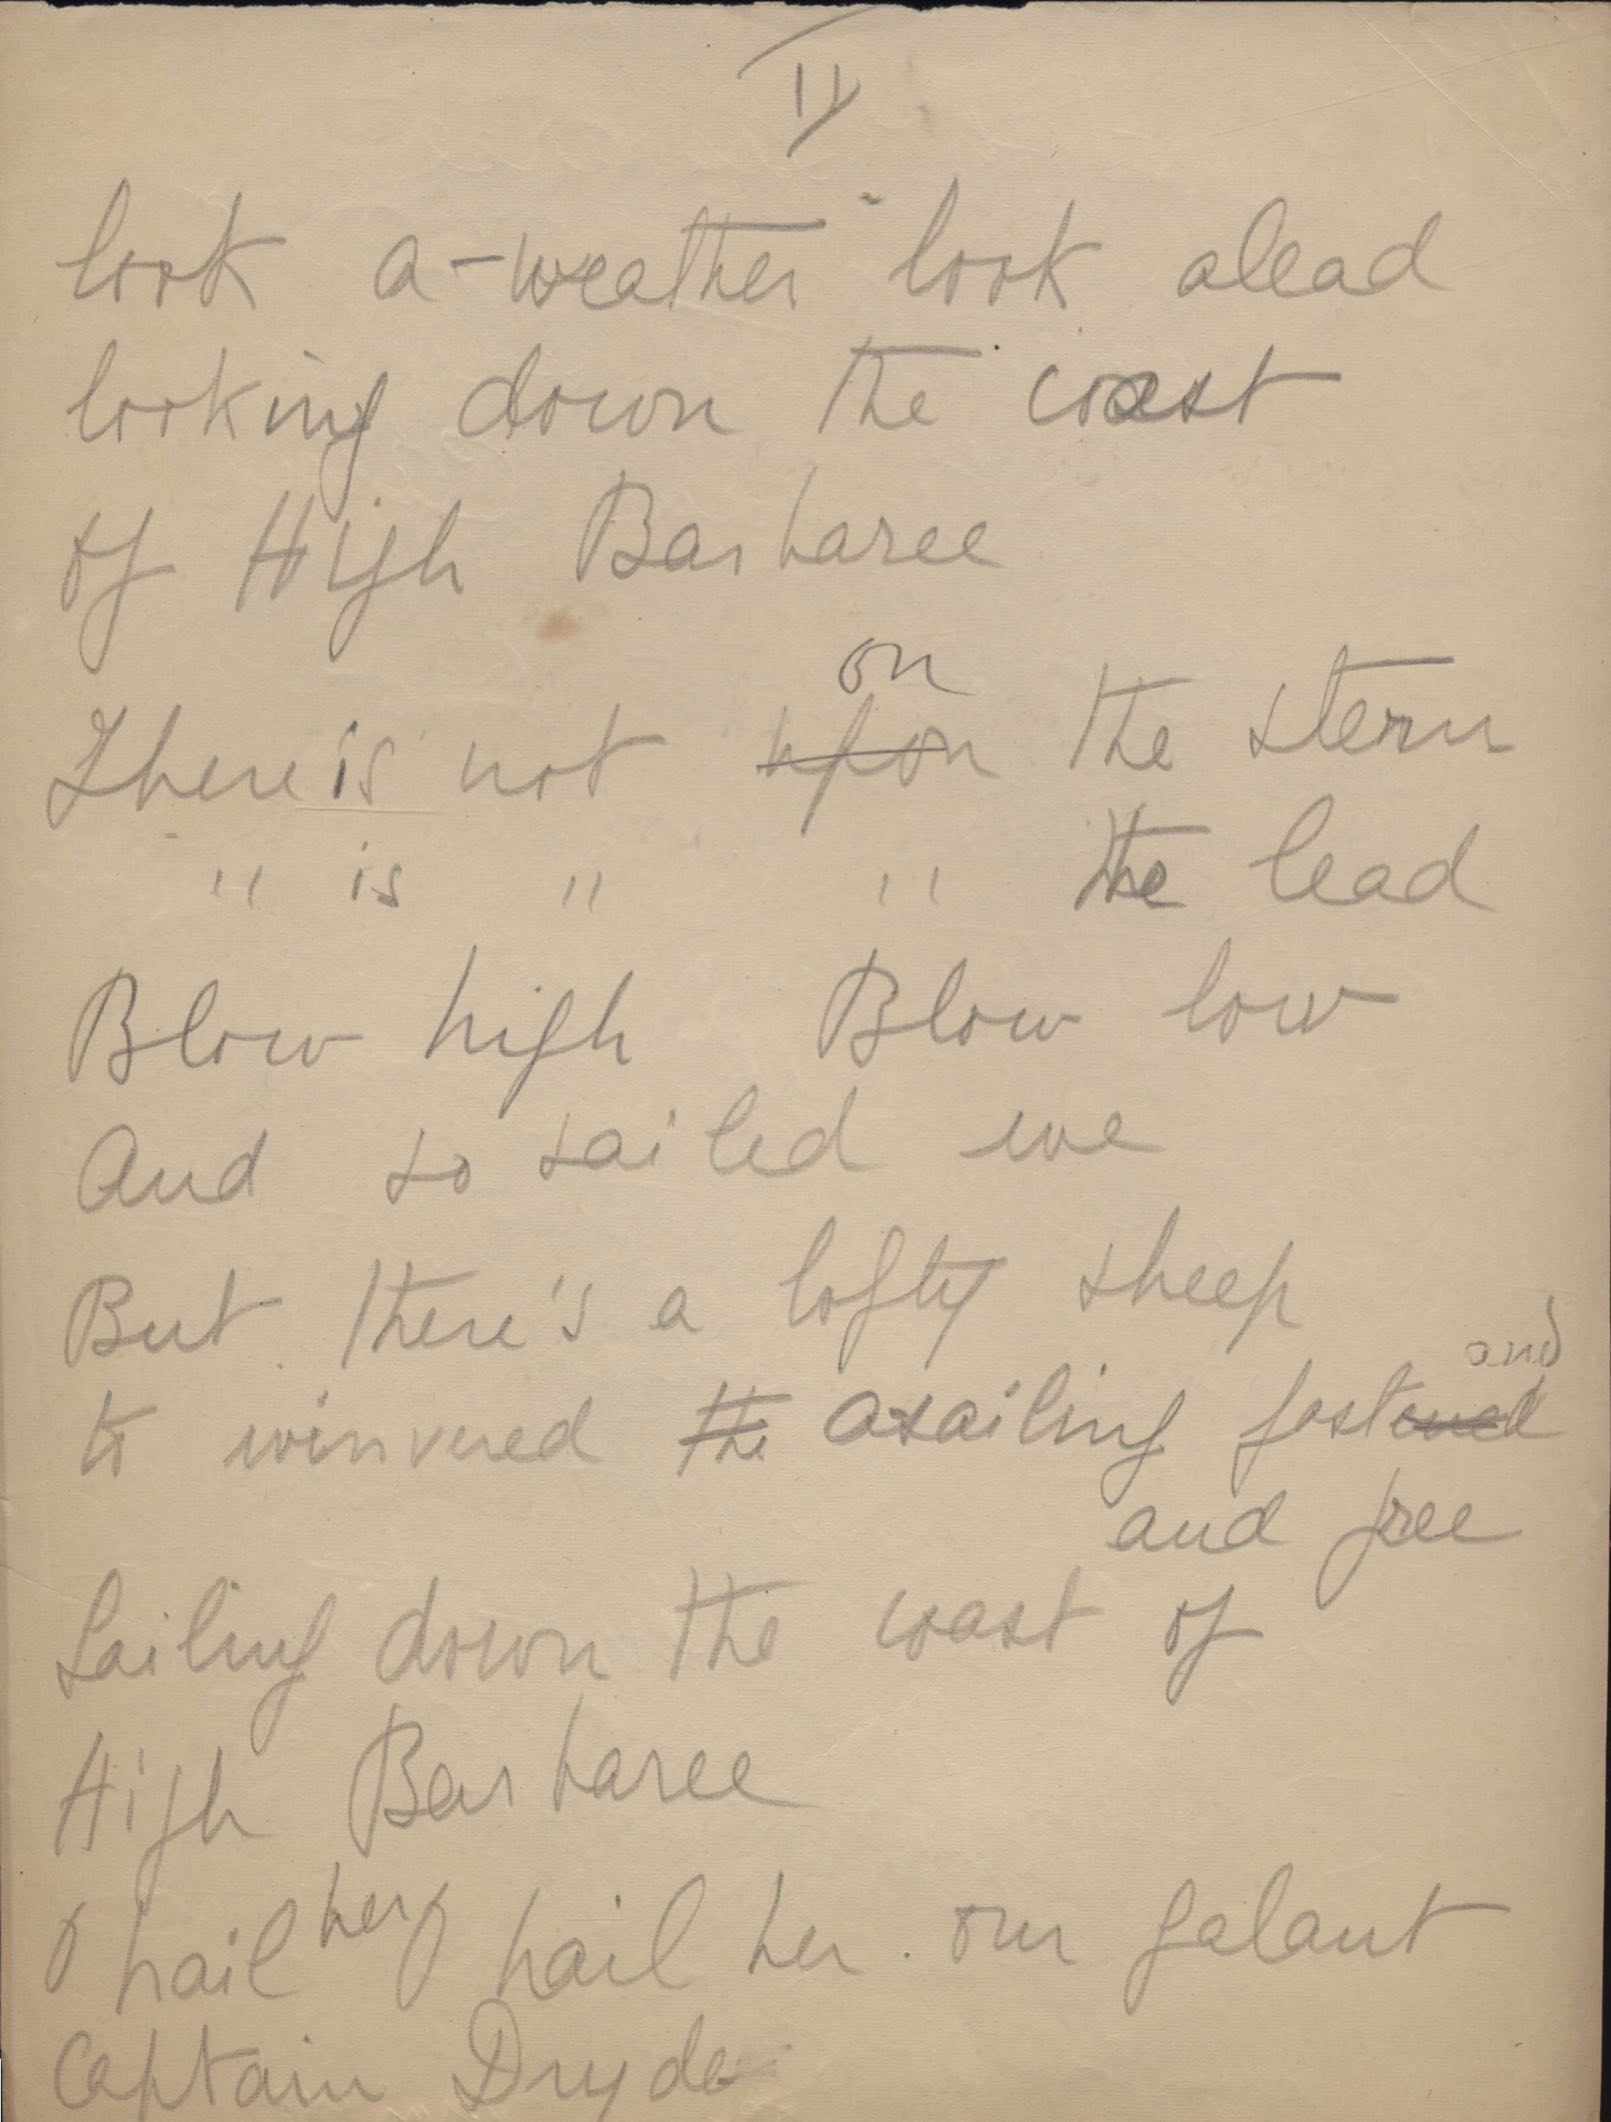 II
look a-weather look alead
looking down the coast
of High Barbaree
on
There is not upon the stern
" is " " the lead
Blow high Blow low
And so sailed we
But there's a lofty sheep
and
to winvered the asailing fast
and free
Sailing down the coast of
High Barbaree
O hail her O hail her. our galant
Captain Dryde